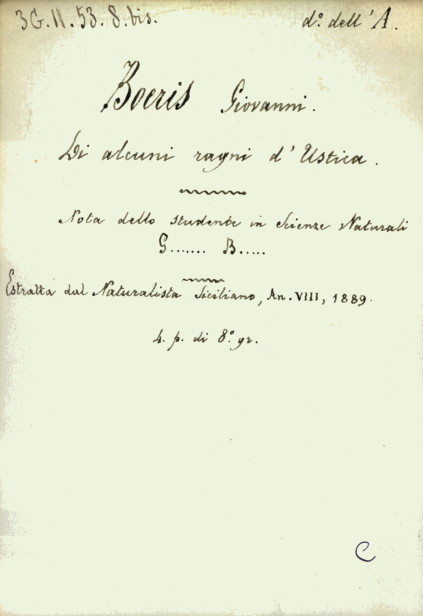 3G.II.53.8.bis.
d.º dell'A.
Boeris Giovanni.
Di alcuni ragni d'Ustica.
Nota dello studente in Scienze Naturali
G....... B.....
Estratta dal Naturalista Siciliano, An. VIII, 1889.
4. p. di 8.º gr.
C